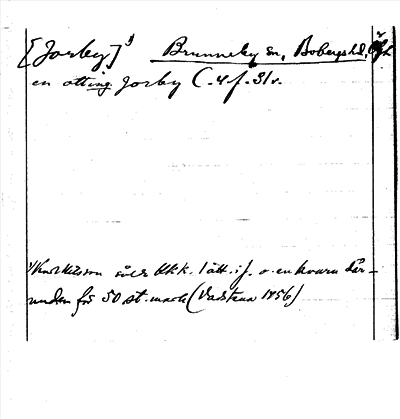 [Jorby]¹) Brunneby sn, Bobergs hd, Ögl
en otting Jorby C. 4 f. 31v.
¹) Knut Nilsson sålde Vkk. 1 ått. i J. o. en kvarn där-
under för 50 st. mark (Vadstena 1456)